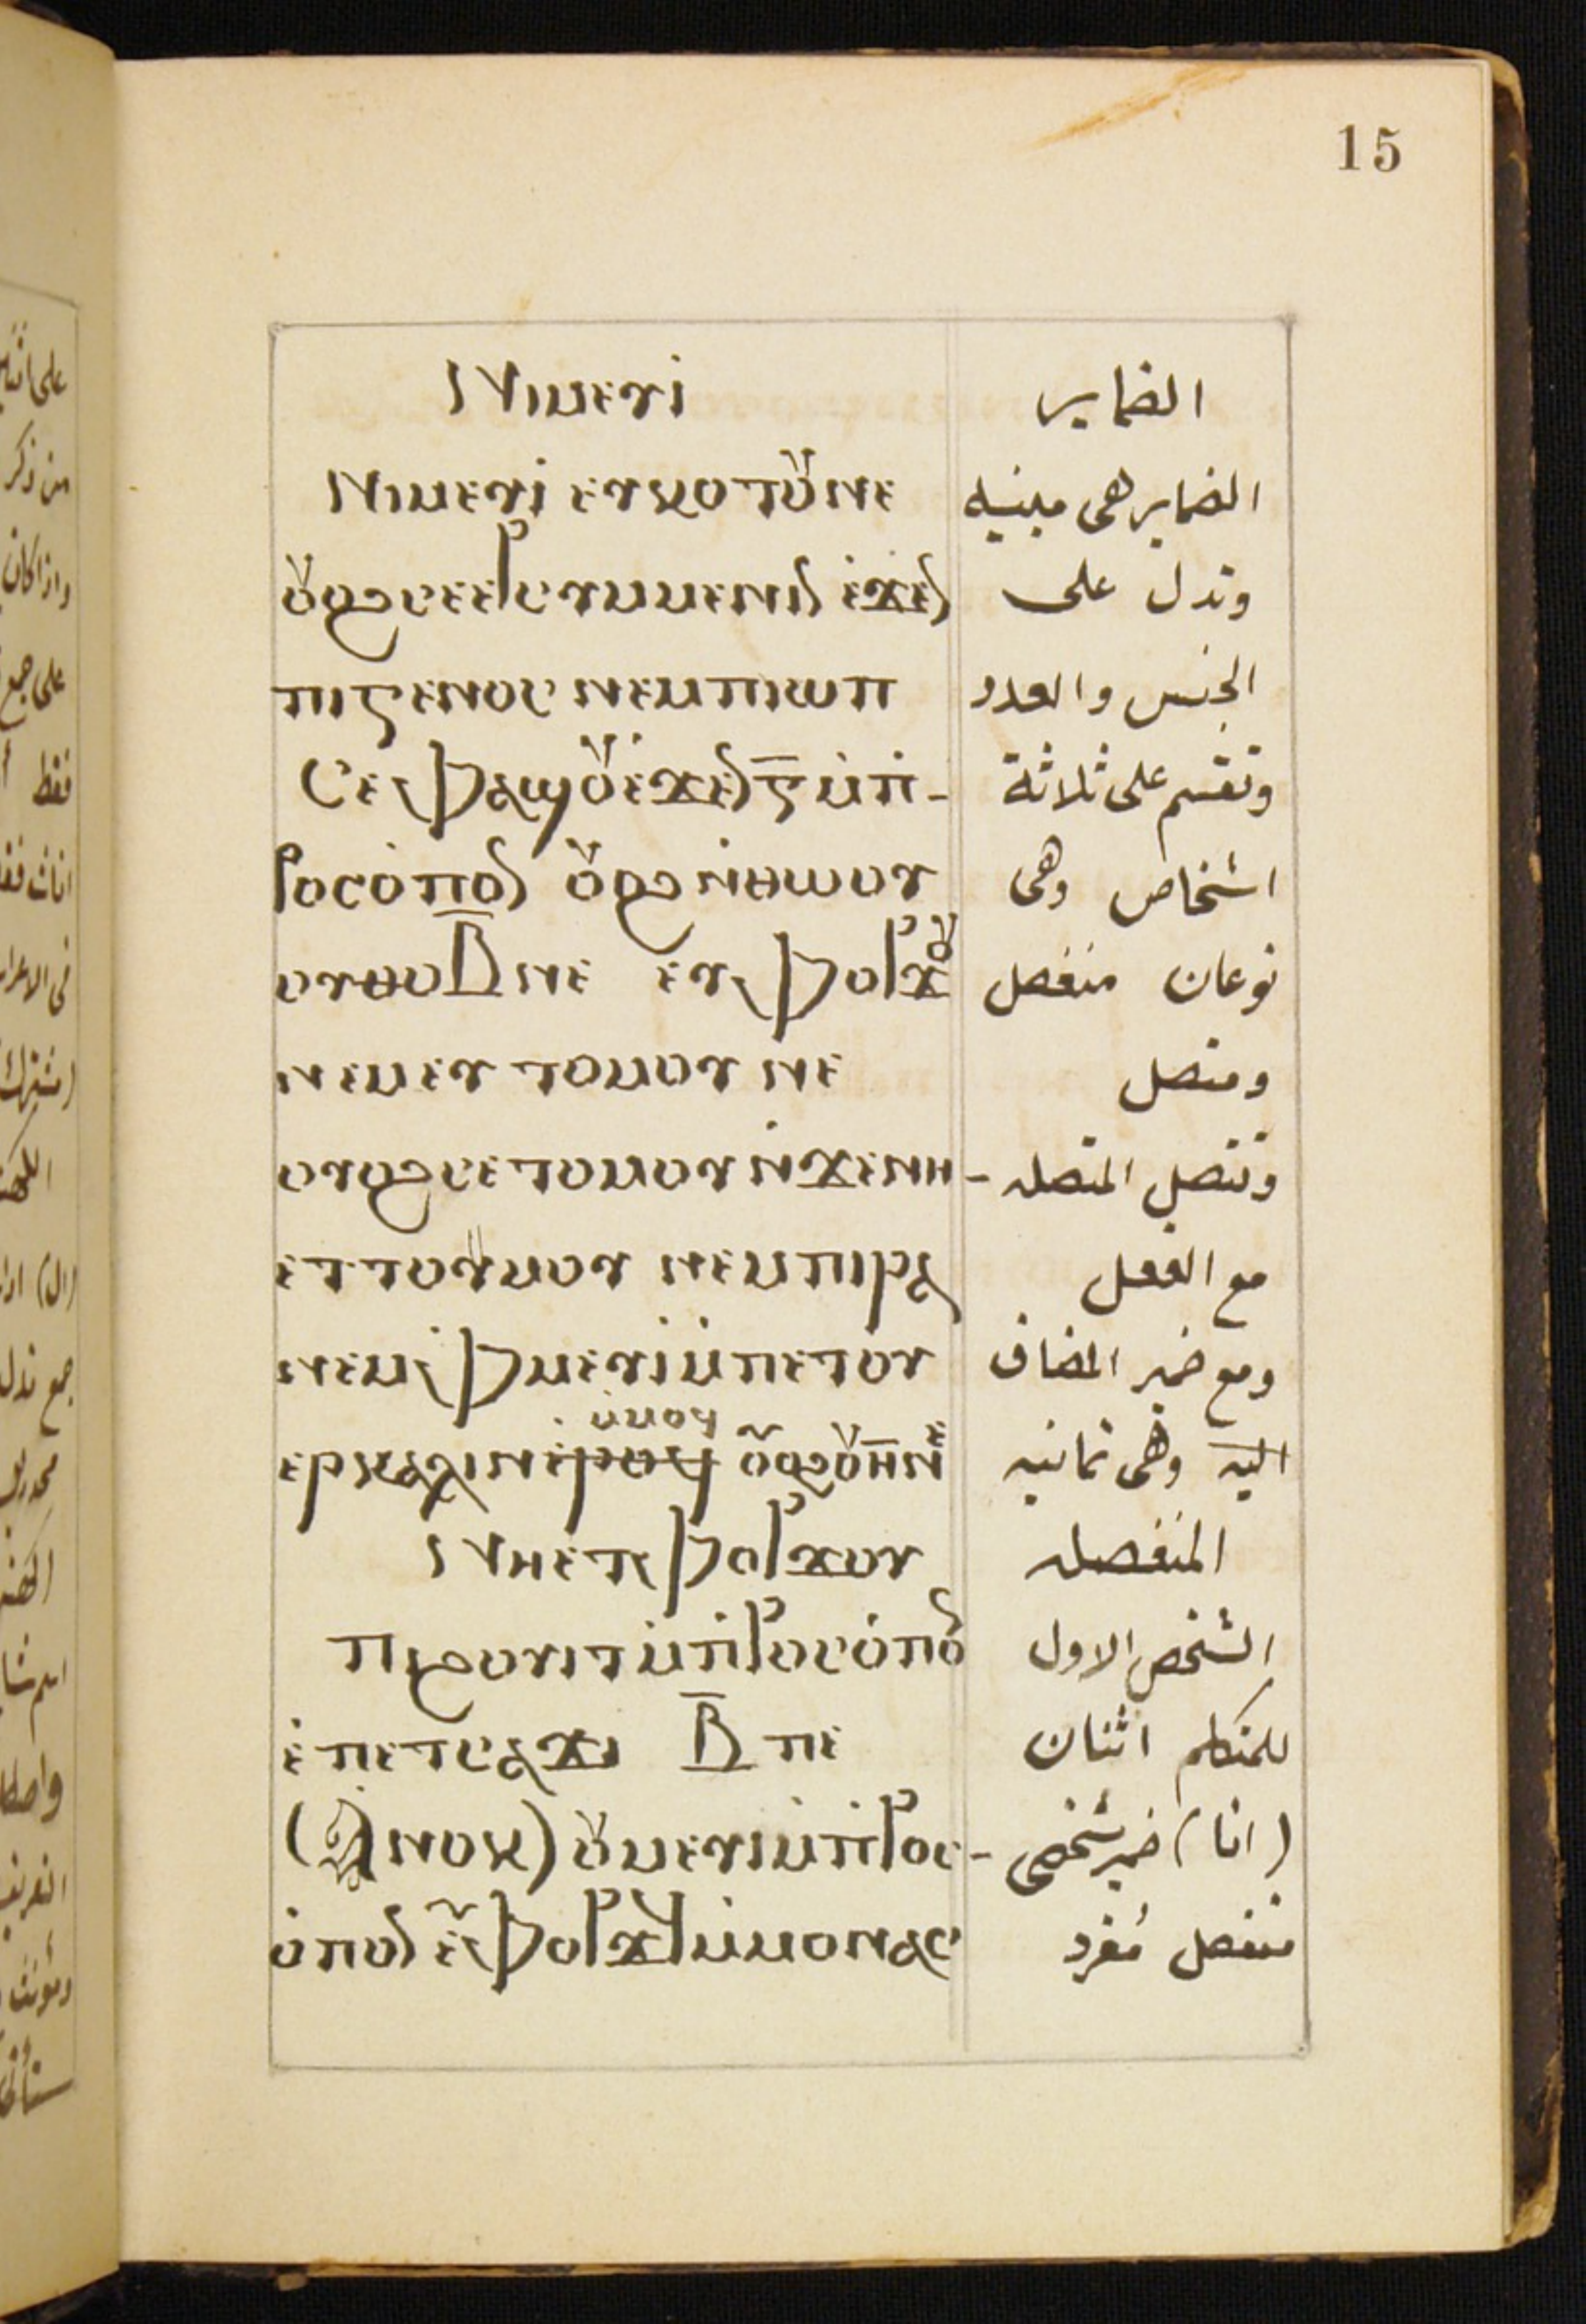 15
Ⲛⲓⲙⲉⲩⲓ الضماير
Ⲛⲓⲙⲉⲩⲓ ⲉⲩⲕⲟⲧⲟⲩⲛⲉ الضماير هى مبنيه
ⲟⲩⲟϩ ⲥⲉⲉⲣⲥⲩⲙⲙⲉⲛⲓⲛ ⲉ̇ϫⲉⲛ وتدل على
ⲡⲓⲅⲉⲛⲟⲥ ⲛⲉⲙ ⲡⲓⲱⲡ الجنس والعدد
Ⲥⲉⲫⲁϣⲟⲩ ⲉ̇ϫⲉⲛ ⲅ̅ ⲙ̇ⲡ̇- وتقسم على ثلاثة
ⲣⲟⲥⲟ̇ⲡⲟⲛ ⲟⲩⲟϩ ⲛ̇ⲑⲱⲟⲩ اشخاص وهى
ⲟⲩⲑⲟ ⲃ̅ ⲛⲉ ⲉⲩⲫⲟⲣϫⲟⲩ نوعان منفصل
ⲛⲉⲙ ⲉⲩⲧⲟⲙⲟⲩ ⲛⲉ ومتصل
ⲟⲩⲟϩ ⲥⲉⲧⲟⲙⲟⲩ ⲛ̇ϫⲉⲛⲏ- وتتصل المتصله
ⲉⲧⲧⲟⲩⲙⲟⲩ ⲛⲉⲙ ⲡⲓⲣⲁ مع الفعل
ⲛⲉⲙ ⲫⲙⲉⲩⲓ ⲙ̇ⲡⲉⲧⲟⲩ ومع ضمير المضاف
ⲙ̇ⲙⲟϥ
ⲟⲩⲟϩ ⲟⲩⲏ̅ⲛⲉ اليه وهى ثمانيه
Ⲛⲏⲉⲧⲫⲟⲣϫⲟⲩ المنفصله
ⲡⲓϩⲟⲩⲓⲧ ⲙ̇ⲡ̇ⲣⲟⲥⲟ̇ⲡⲟⲛ الشخص الاول
ⲉ̇ⲡⲉⲧⲥⲁϫⲓ ⲃ̅ ⲡⲉ للمتكلم اثنان
(Ⲁⲛⲟⲕ) ⲟⲩⲙⲉⲩⲓ ⲙ̇ⲡ̇ⲣⲟⲥ- (انا) ضمير شخصى
ⲟ̇ⲡⲟⲛ ⲉϥⲫⲟⲣϫ ⲙ̇ⲙⲟⲛⲁⲥ منفصل مُفرد